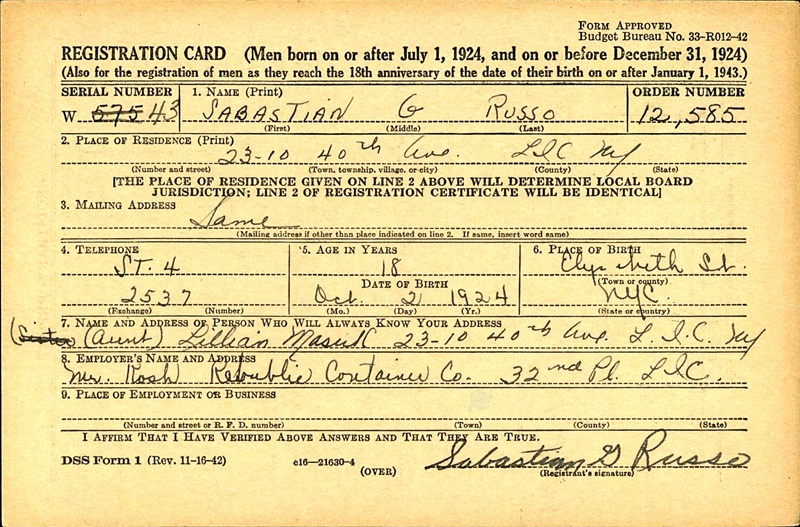 FORM APPROVED
Budget Bureau No. 33-R012-42
REGISTRATION CARD (Men born on or after July 1, 1924, and on or before December 31, 1924)
(Also for the registration of men as they reach the 18th anniversary of the date of their birth on or after January 1, 1943.)
SERIAL NUMBER 1. NAME (Print) ORDER NUMBER
W 575 43 SABASTIAN G RUSSO 12,585
(First) (Middle) (Last)
2. PLACE OF RESIDENCE (Print)
23-10 40th Ave. LIC NY
(Number and street) (Town, township, village, or city) (County) (State)
[THE PLACE OF RESIDENCE GIVEN ON LINE 2 ABOVE WILL DETERMINE LOCAL BOARD
JURISDICTION; LINE 2 OF REGISTRATION CERTIFICATE WILL BE IDENTICAL]
3. MAILING ADDRESS
Same
(Mailing address if other than place indicated on line 2. If same, insert word same)
4. TELEPHONE 5. AGE IN YEARS 6. PLACE OF BIRTH
ST. 4 18 St.
DATE OF BIRTH (Town or county)
2537 Oct. 2 1924 NYC.
(Exchange) (Number) (Mo.) (Day) (Yr.) (State or country)
7. NAME AND ADDRESS OF PERSON WHO WILL ALWAYS KNOW YOUR ADDRESS
(Sister (Aunt) Lillian 23-10 40th Ave. L.I.C. NY
8. EMPLOYER'S NAME AND ADDRESS
Mr. Rosh Republic Container Co. 32nd Pl. LIC.
9. PLACE OF EMPLOYMENT OR BUSINESS
(Number and street or R. F. D. number) (Town) (County) (State)
I AFFIRM THAT I HAVE VERIFIED ABOVE ANSWERS AND THAT THEY ARE TRUE.
DSS Form 1 (Rev. 11-16-42) c16-21630-4 (OVER) Sabastian G Russo
(Registrant's signature)